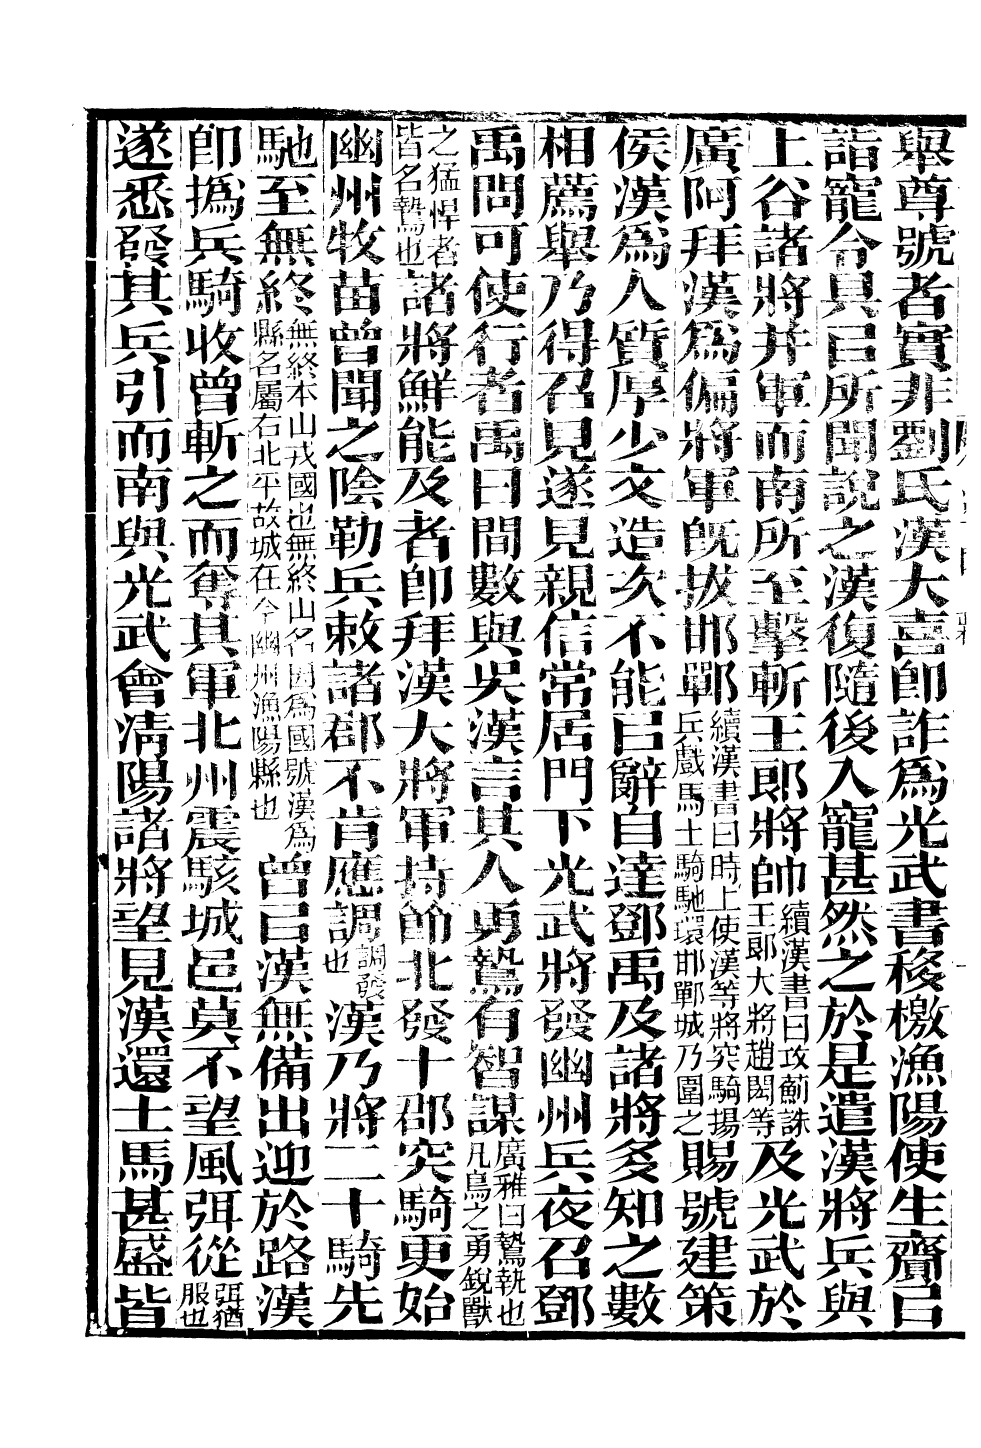 舉尊號者實非劉氏漢大喜卽詐爲光武書移檄漁陽使生齎㠯
詣寵令具㠯所聞說之漢復隨後入寵甚然之於是遣漢將兵與
上谷諸將并軍而南所至擊斬王郎將帥續漢書曰攻薊誅王郎大將趙閎等及光武於
廣阿拜漢爲偏將軍旣拔邯鄲續漢書曰時上使漢等將突騎揚兵戲馬士騎馳環邯鄲城乃圍之賜號建策
侯漢爲人質厚少文造次不能㠯辭自達鄧禹及諸將多知之數
相薦舉乃得召見遂見親信常居門下光武將發幽州兵夜召鄧
禹問可使行者禹曰間數與吳漢言其人勇鷙有智謀廣雅曰鷙執也凡鳥之勇銳獸
之猛悍者皆名鷙也諸將鮮能及者卽拜漢大將軍持節北發十郡突騎更始
幽州牧苗曾聞之陰勒兵敕諸郡不肯應調調發也漢乃將二十騎先
馳至無終無終本山戎國也無終山名因爲國號漢爲縣名屬右北平故城在今幽州漁陽縣也曾㠯漢無備出迎於路漢
卽撝兵騎收曾斬之而奪其軍北州震駭城邑莫不望風弭從弭猶服也
遂悉發其兵引而南與光武會清陽諸將望見漢還士馬甚盛皆